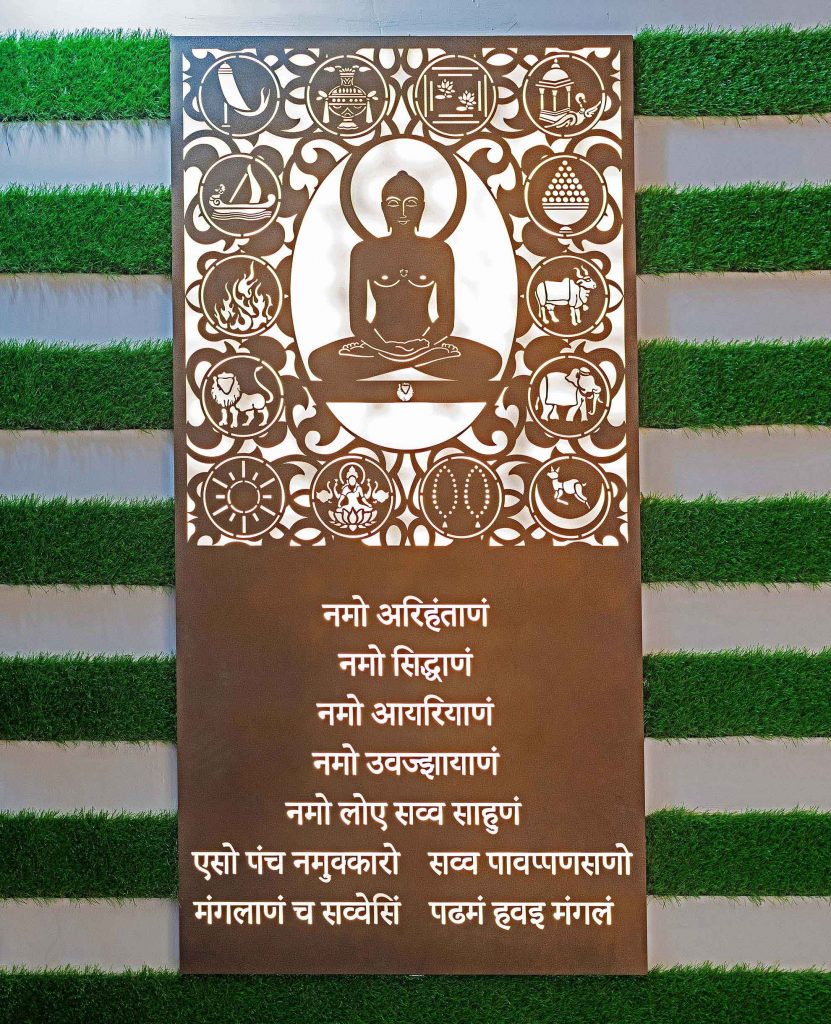 नमो अरिहंताणं
नमो सिद्धाणं
नमो आयरियाणं
नमो उवज्झायाणं
नमो लोए सव्व साहुणं
एसो पंच नमुक्कारो सव्व पावप्पणसणो
मंगलाणं च सव्वेसिं पढमं हवइ मंगलं